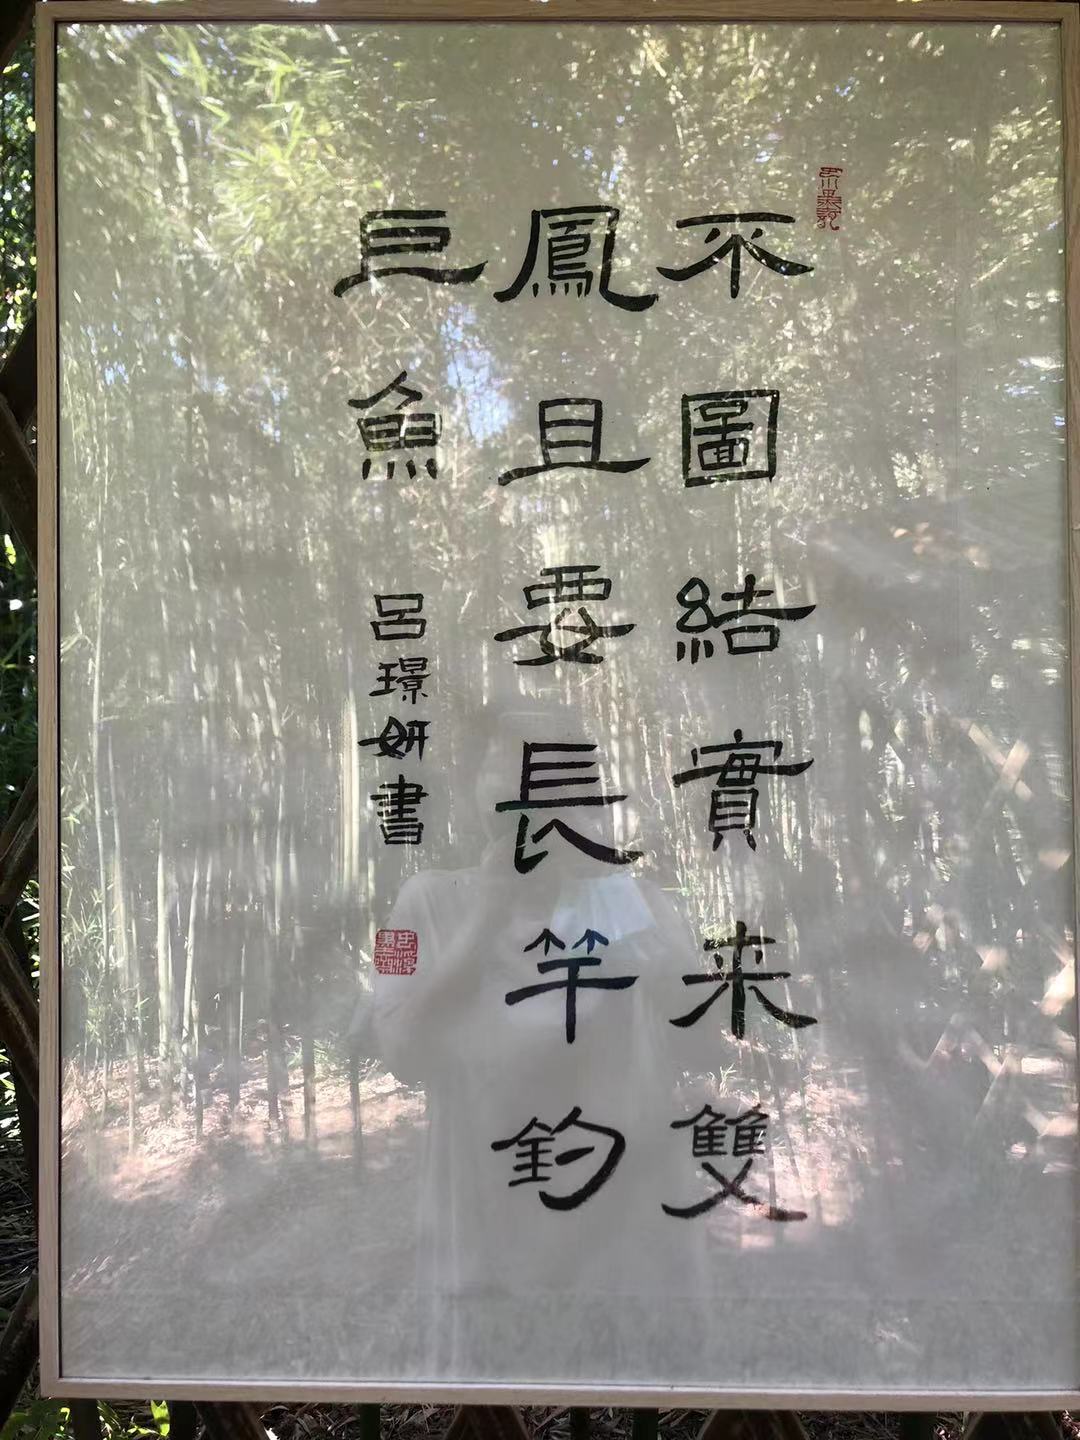 不圖結實来雙
鳳且要長竿鈞
巨魚
呂璟妍書